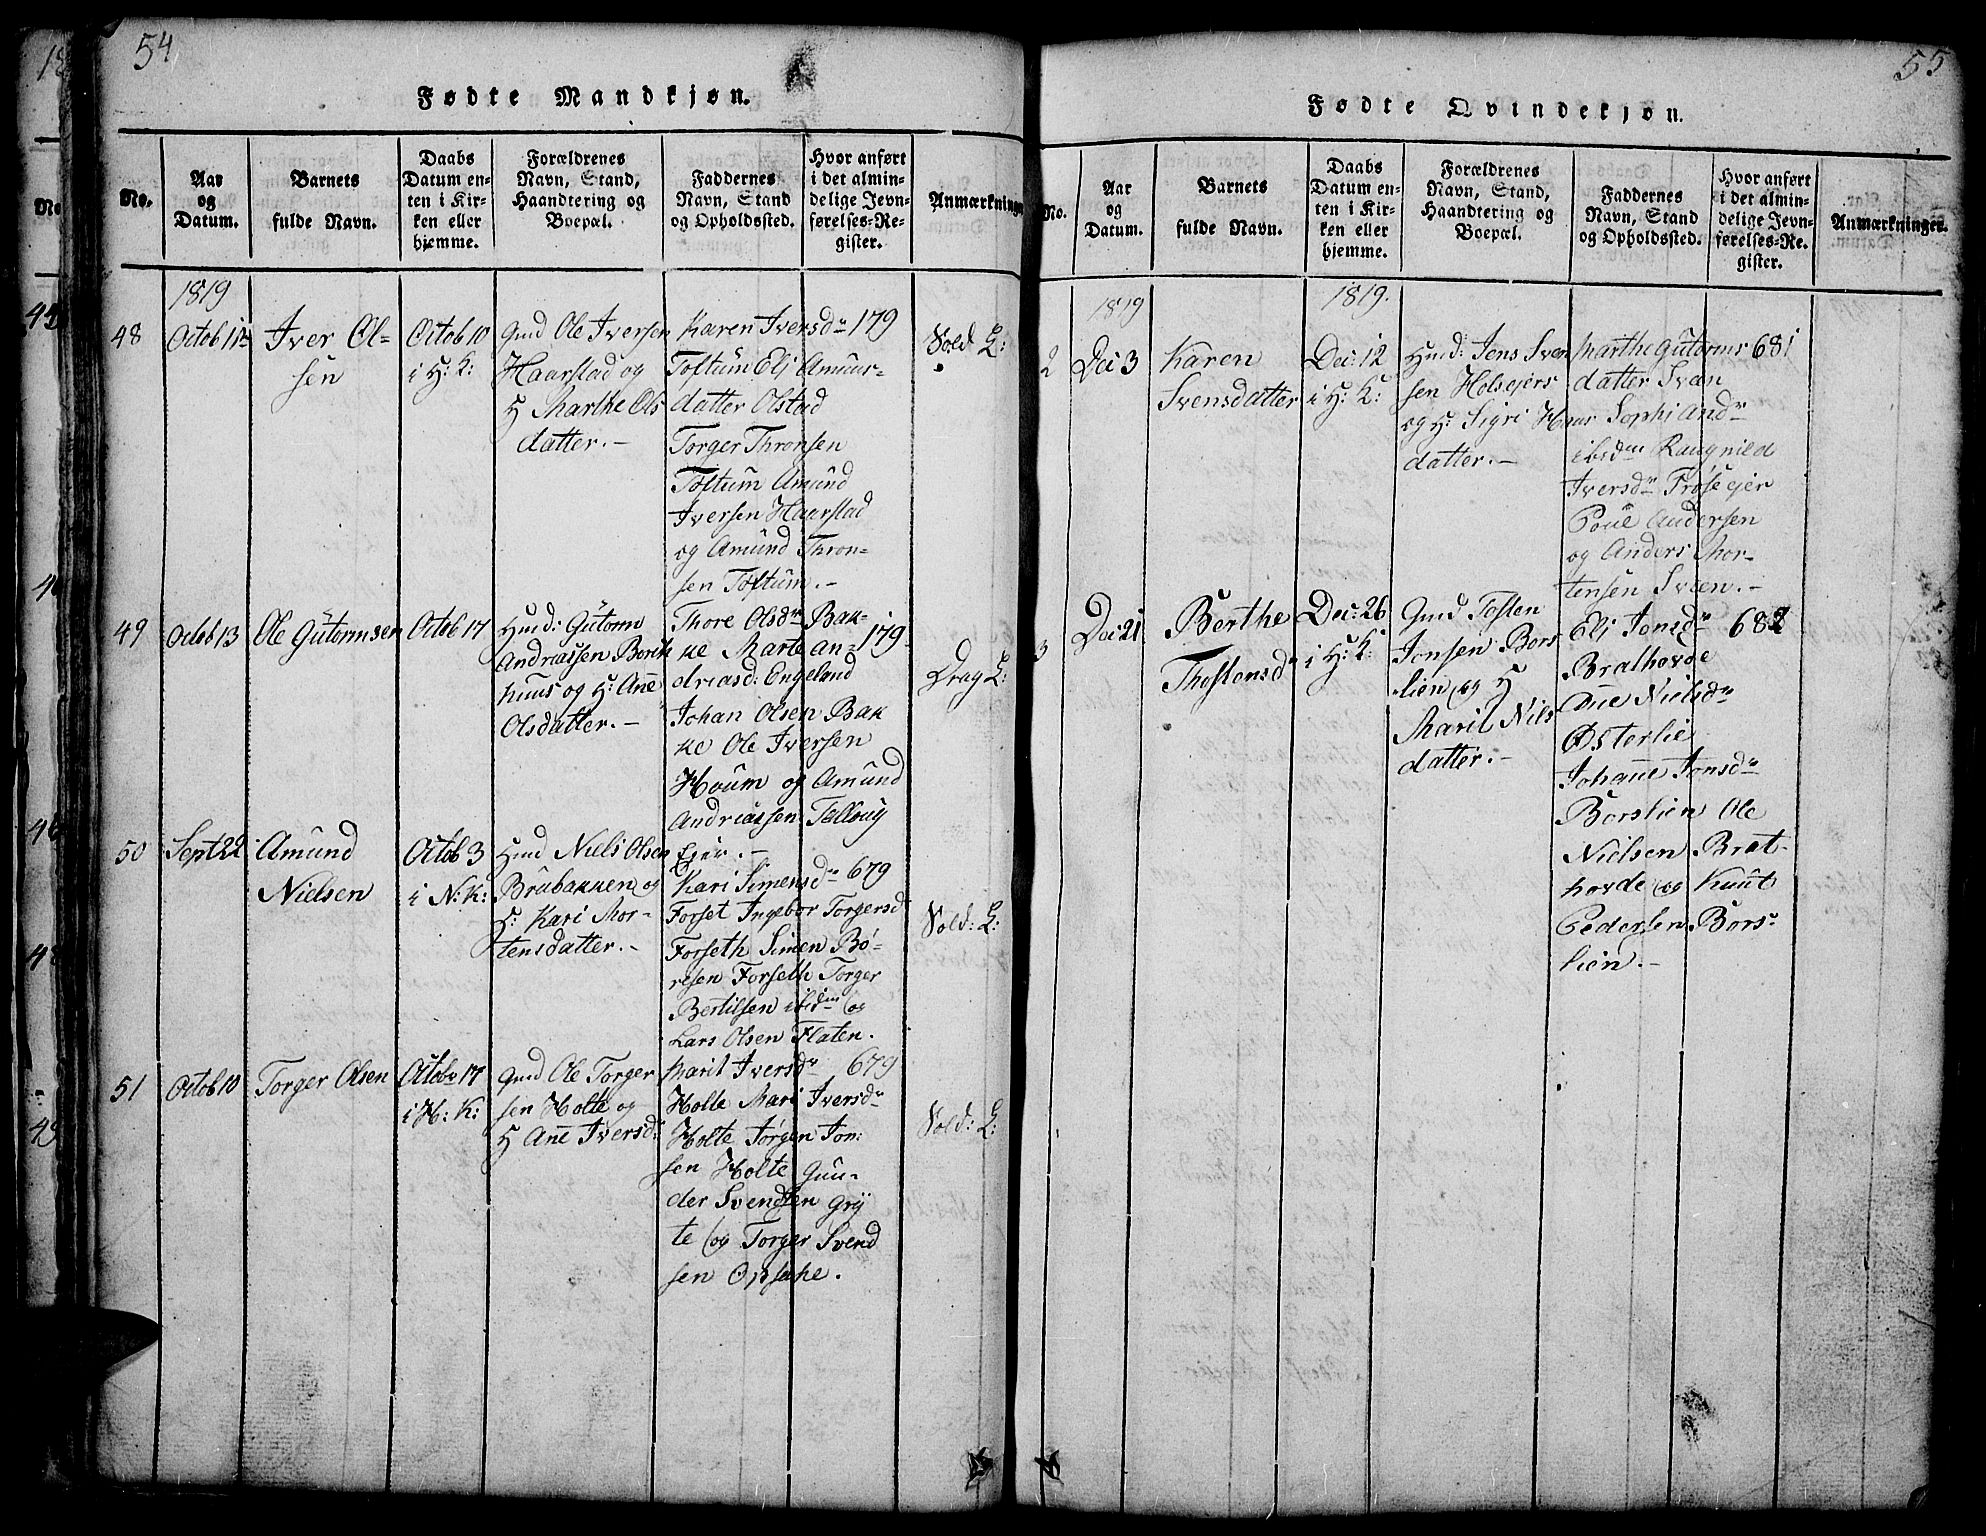 54
Fødte Mandkjøn.
No.
Aar
og
Datum.
Barnets
fulde Navn.
Daabs
Datum en-
ten i Kir-
ken eller
hjemme.
Forældrenes
Navn, Stand,
Haandtering og
Boepæl.
Faddernes
Navn, Stand
og Opholdssted.
Hvor anført
i det almin-
delige Jevn-
førelses-Re-
gister.
Anmærkninger
1819
48
Octob
Iver Ol-
sen
Octob 10
i H: K:
Gmd Ole Iversen
Haarstad og
H Marthe Ols
datter.-
Karen Iversdr 179
Toftum Eli Amun-
datter Olstad
Torger Thronsen
Toftum Amund
Iversen Haarstad
og Amund Thron-
sen Toftum.-
Vold L:
49
Octob 13
Ole Gutormsen
Octob 17
Husd: Gutorm
Andreassen Borck
huus og H: Ane
Olsdatter.-
Thore Olsdr Bak-
ke Marte An- 179
driasd: Engeland
Johan Olsen Bak
ke Ole Iversen
Houm og Amund
Andreassen
Eier.-
Drag L:
50
Sept 22
Amund
Nielsen
Octob 3
i N: K:
Husd Niels Olsen
Brubakken og
H: Kari Mor-
tensdatter.-
Kari Simensdr 679
Forset Ingebor Torgersd
Forseth Simen Bø-
resen Forseth Torger
Bertilsen ibidm og
Lars Olsen Flaten.
Vold: L:
51
Octob 10
Torger Olsen
Octobr 17
i H: K:
Gmd Ole Torger
sen Holte og
H Ane Iversd:
Marit Iversdr 679
Holte Mari Iversdr
Holte Jørgen Jon:
sen Holte Gun-
der Svendsen Gry
te og Torger Svend
sen Opsahe.
Vold: L:
55
Fødte Qvindekjøn.
No.
Aar
og
Datum.
Barnets
fulde Navn.
Daabs
Datum en-
ten i Kir-
ken eller
hjemme.
Forældrenes
Navn, Stand,
Haandtering og
Boepæl.
Faddernes
Navn, Stand
og Opholdssted.
Hvor anført
i det almin-
delige Jevn-
førelses-Re-
gister.
Anmærkninger.
1819
1819.
2
Dec 3
Karen
Svensdatter
Dec: 12
i H: K:
Husd: Jens Sven
sen Holsejer
og H: Sigri Haar
datter.-
Marthe Gutorms 681
datter Svan
Sophi Andr
ibidm Raugnild
Iversdr Frøsejer
Poul Andersen
og Anders Mor-
tensen Svaen.-
3
Dec: 21
Berthe
Thostensdr
Dec: 26
i H: K:
Gmd Tosten
Jonsen Bors
lien og H
Marit Nils
datter.-
Eli Jonsdr 682
Brathovde
Ane Nielsdr
Østerlie
Johane Jonsdr
Borslien Ole
Nielsen Brat-
hovde og Knut
Pedersen Bors-
lien.-